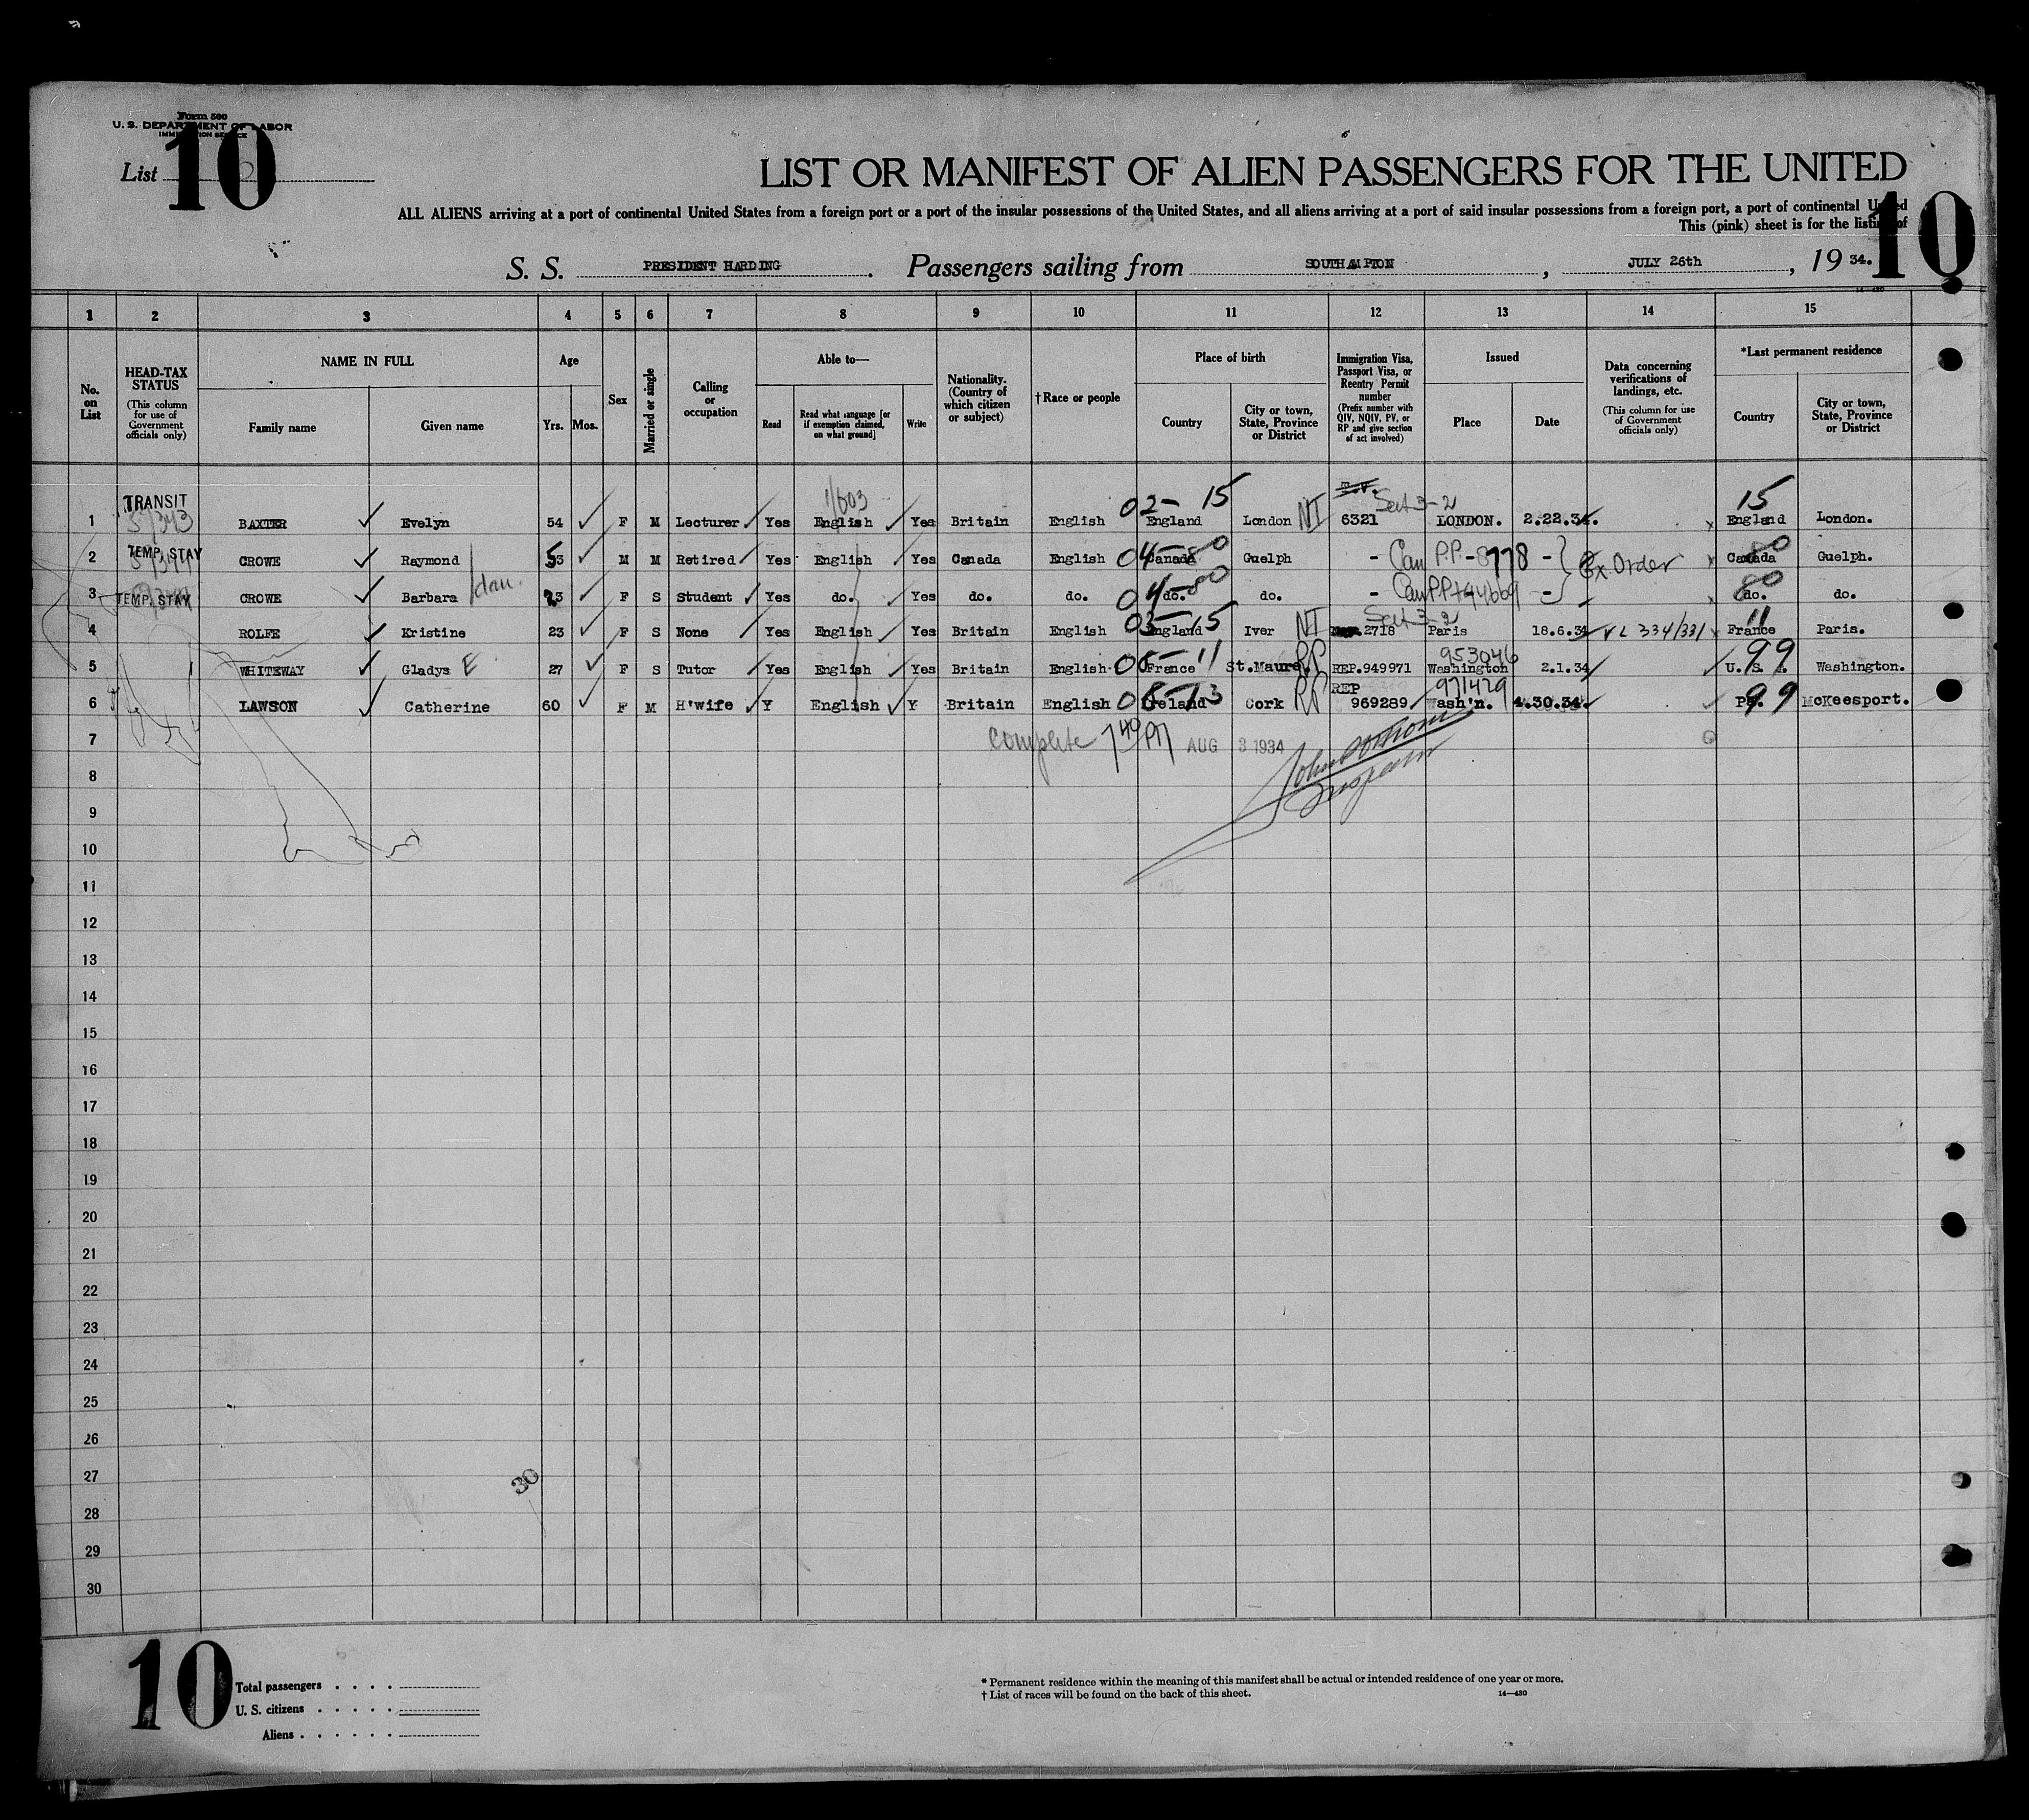 Form 500
U. S. DEPARTMENT OF LABOR
IMMIGRATION SERVICE
List 10
LIST OR MANIFEST OF ALIEN PASSENGERS FOR THE UNITED
ALL ALIENS arriving at a port of continental United States from a foreign port or a port of the insular possessions of the United States, and all aliens arriving at a port of said insular possessions from a foreign port, a port of continental United
This (pink) sheet is for the listing of
10
S. S. PRESIDENT HARDING. Passengers sailing from SOUTHAMPTON, JULY 26th, 19 34.
1 2 3 4 5 6 7 8 9 10 11 12 13 14 15
No. on List
HEAD-TAX STATUS (This column for use of Government officials only)
NAME IN FULL Family name Given name
Age Yrs. Mos.
Sex
Married or single
Calling or occupation
Able to— Read Read what language [or if exemption claimed, on what ground] Write
Nationality. (Country of which citizen or subject)
†Race or people
Place of birth Country City or town, State, Province or District
Immigration Visa, Passport Visa, or Reentry Permit number (Prefix number with QIV, NQIV, PV, or RP and give section of act involved)
Issued Place Date
Data concerning verifications of landings, etc. (This column for use of Government officials only)
*Last permanent residence Country City or town, State, Province or District
1 TRANSIT BAXTER Evelyn 54 F M Lecturer Yes English Yes Britain English 02-15 England London NI 6321 Sect 3-2 LONDON. 2.22.34. 15 England London.
2 TEMP. STAY CROWE Raymond 53 M M Retired Yes English Yes Canada English 04-80 Canada Guelph - Can P.P-8778 - Ex. Order 80 Canada Guelph.
3 TEMP. STAY CROWE Barbara dau. 23 F S Student Yes do. Yes do. do. 04-80 do. do. - Can PP - 80 do. do.
4 ROLFE Kristine 23 F S None Yes English Yes Britain English 15 England Iver NI 2718 Sect 3-2 Paris 18.6.34 VL 334/331 11 France Paris.
5 WHITEWAY Gladys E 27 F S Tutor Yes English Yes Britain English 11 France St.Maure. RP REP.949971 953046 Washington 2.1.34 99 U.S.A. Washington.
6 LAWSON Catherine 60 F M H'wife Y English Y Britain English 13 Ireland Cork RP REP 969289 971429 Wash'n. 4.30.34. 99 Pa. McKeesport.
7 complete 7 40 PM AUG 3 1934
Inspector
8
9
10
11
12
13
14
15
16
17
18
19
20
21
22
23
24
25
26
27
30
28
29
30
10
Total passengers
U. S. citizens
Aliens
* Permanent residence within the meaning of this manifest shall be actual or intended residence of one year or more.
† List of races will be found on the back of this sheet.
14—430